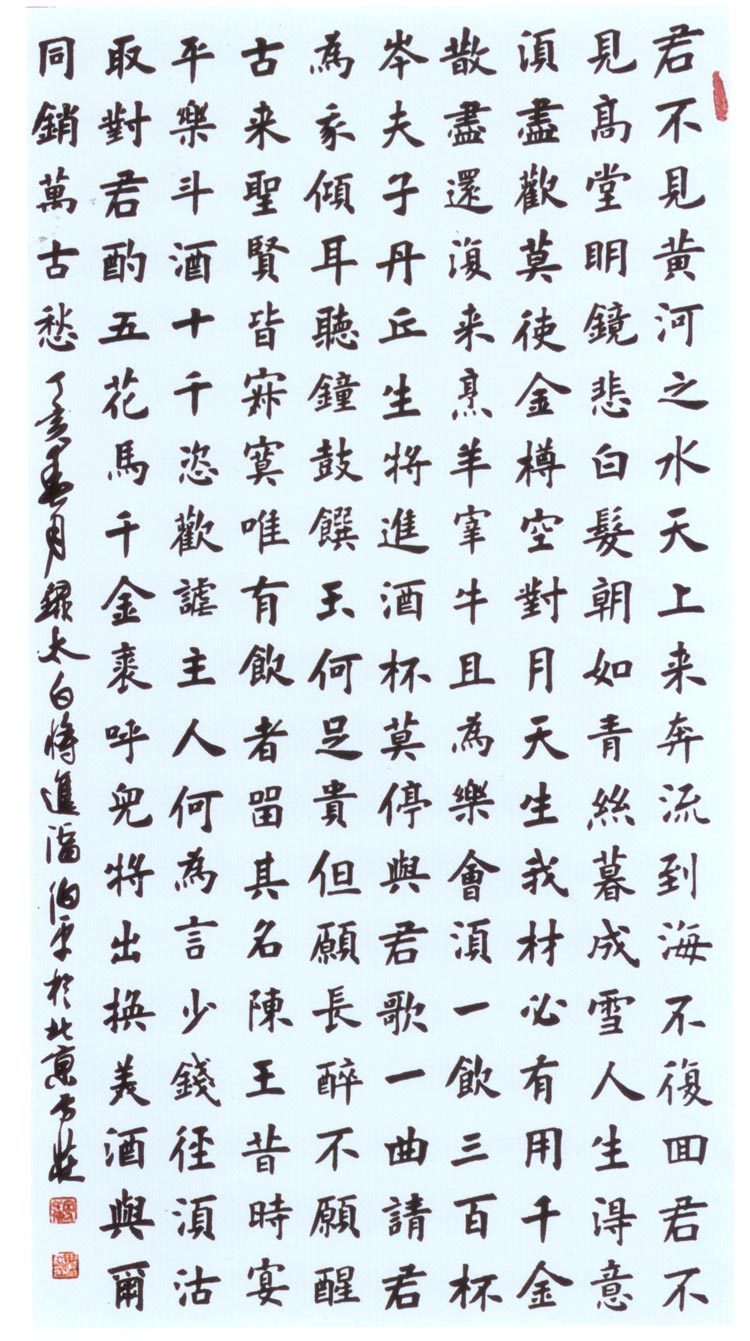 君不見黃河之水天上来奔流到海不復囬君不
見高堂明鏡悲白髮朝如青絲暮成雪人生得意
須盡歡莫使金樽空對月天生我材必有用千金
散盡還復来烹羊宰牛且為樂會須一飲三百杯
岑夫子丹丘生將進酒杯莫停與君歌一曲請君
為我傾耳聽鐘鼓饌玉何足貴但願長醉不願醒
古来聖賢皆寂寞唯有飲者留其名陳王昔時宴
平樂斗酒十千恣歡謔主人何為言少錢徑須沽
取對君酌五花馬千金裘呼兒將出換美酒與爾
同銷萬古愁 丁亥春月錄太白將進 伯平於北京方莊